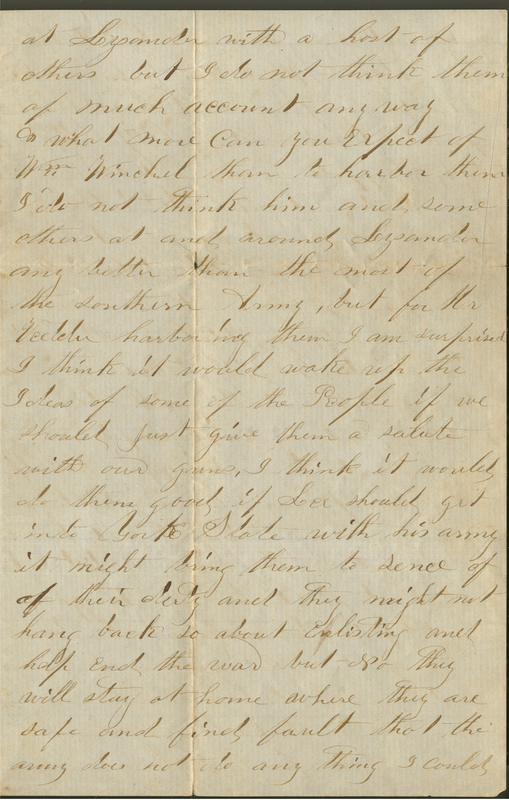 at Lysander with a host of
others but I do not think them
of much account any way
& what more Can you Expect of
Wm Winchel than to harbor them
I do not think him and some
others at and around Lysander
any better than the most of
the southern Army, but for Mr
harboring them I am surprised
I think it would wake up the
Ideas of some of the People if we
should just give them a salute
with our guns, I think it would
do them good if Lee should get
into York State with his army
it might bring them to sence of
of their duty and they might not
hang back so about Enlisting and
help End the war but no they
will stay at home where they are
safe and find fault that the
army does not do any thing I could